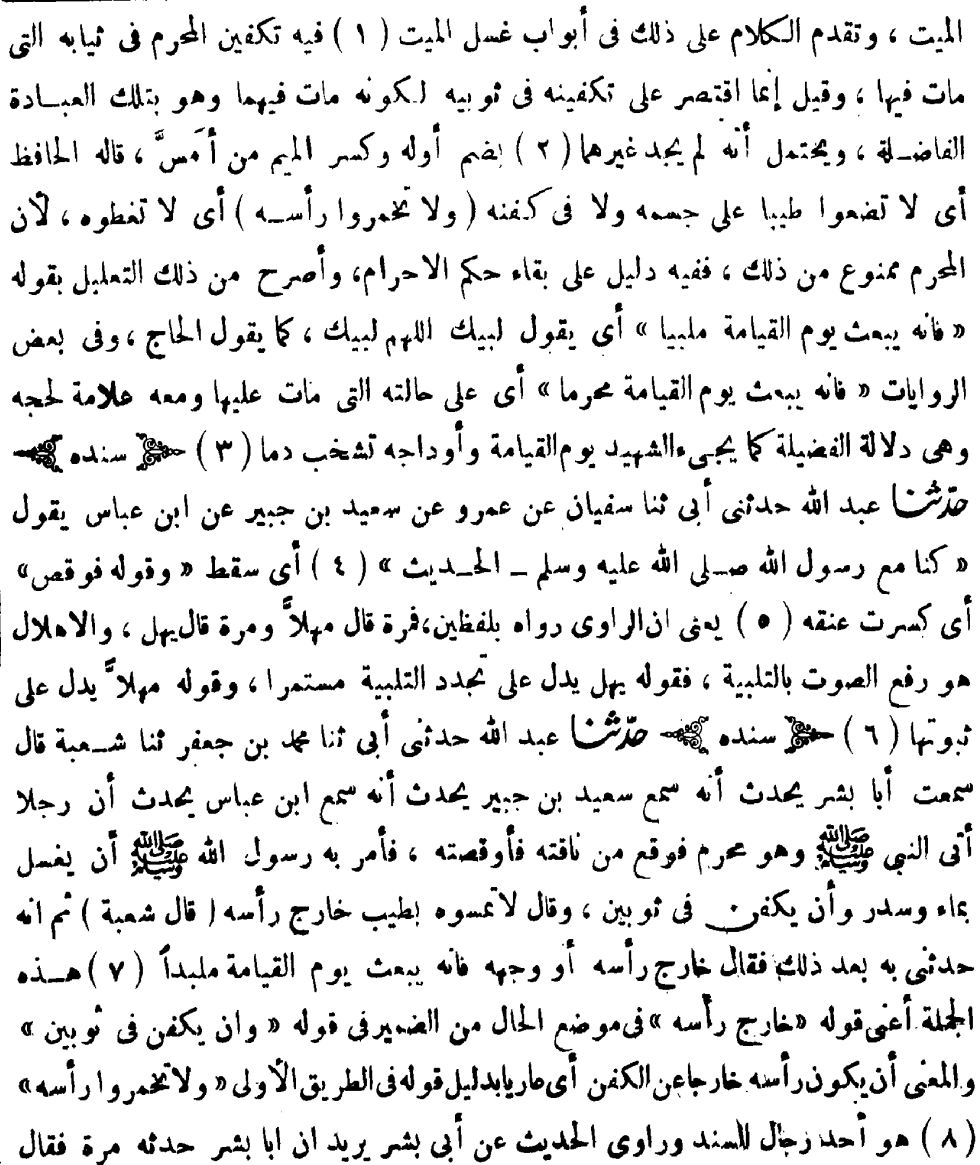 الميت ، وتقدم الكلام على ذلك فى أبواب غسل الميت ( ١ ) فيه تكفين المحرم فى ثيابه التى
مات فيها ، وقيل إنما اقتصر على تكفينه فى ثوبيه لكونه مات فيهما وهو بتلك العبادة
الفاضلة ، ويحتمل أنه لم يجد غيرهما ( ٢ ) بضم أوله وكسر الميم من أمَسَّ ، قاله الحافظ
أى لا تضعوا طيبا على جسمه ولا فى كفنه ( ولا تخمروا رأسه ) أى لا تغطوه ، لأن
المحرم ممنوع من ذلك ، ففيه دليل على بقاء حكم الاحرام، وأصرح من ذلك التعليل بقوله
« فانه يبعث يوم القيامة ملبيا » أى يقول لبيك اللهم لبيك ، كما يقول الحاج ، وفى بعض
الروايات « فانه يبعث يوم القيامة محرما » أى على حالته التى مات عليها ومعه علامة لحجه
وهى دلالة الفضيلة كما يجىء الشهيد يوم القيامة وأوداجه تشخب دما ( ٣ ) سنده
حدّثنا عبد الله حدثنى أبى ثنا سفيان عن عمرو عن سعيد بن جبير عن ابن عباس يقول
« كنا مع رسول الله صلى الله عليه وسلم ــ الحديث » ( ٤ ) أى سقط « وقوله فوقص»
أى كسرت عنقه ( ٥ ) يعنى ان الراوى رواه بلفظين،فمرة قال مهلاًّ ومرة قال يهل ، والاهلال
هو رفع الصوت بالتلبية ، فقوله يهل يدل على تجدد التلبية مستمرا ، وقوله مهلاًّ يدل على
ثبوتها ( ٦ ) سنده حدّثنا عبد الله حدثنى أبى ثنا محمد بن جعفر ثنا شعبة قال
سمعت أبا بشر يحدث أنه سمع سعيد بن جبير يحدث أنه سمع ابن عباس يحدث أن رجلا
أتى النبى ﷺ وهو محرم فوقع من ناقته فأوقصته ، فأمر به رسول الله ﷺ أن يغسل
بماء وسدر وأن يكفن فى ثوبين ، وقال لا تمسوه بطيب خارج رأسه ( قال شعبة ) ثم انه
حدثنى به بعد ذلك فقال خارج رأسه أو وجهه فانه يبعث يوم القيامة ملبداً ( ٧ ) هذه
الجملة أعنى قوله «خارج رأسه »فى موضع الحال من الضمير فى قوله « وان يكفن فى ثوبين »
والمعنى أن يكون رأسه خارجا عن الكفن أى عاريا بدليل قوله فى الطريق الأولى « ولا تخمروا رأسه»
( ٨ ) هو أحد رجال السند وراوى الحديث عن أبى بشر يريد ان ابا بشر حدثه مرة فقال